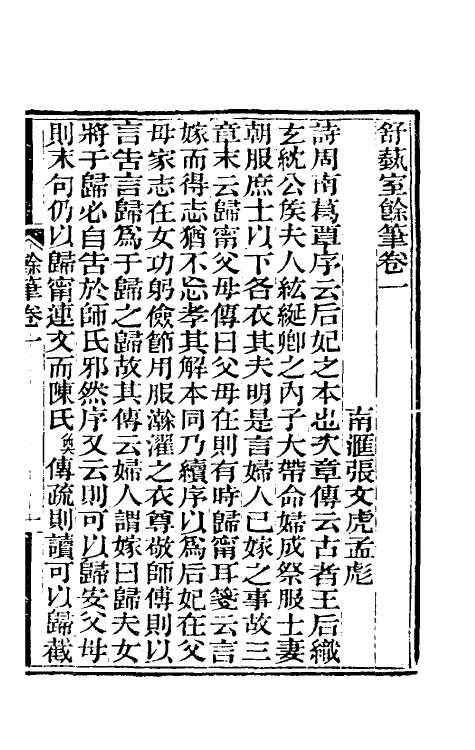 舒藝室餘筆卷一
南滙張文虎孟彪
詩周南葛覃序云后妃之本也次章傳云古者王后織
玄紞公矦夫人紘綖卿之內子大帶命婦成祭服士妻
朝服庶士以下各衣其夫明是言婦人已嫁之事故三
章末云歸甯父母傳曰父母在則有時歸甯耳箋云言
嫁而得志猶不忘孝其解本同乃續序以爲后妃在父
母家志在女功躬儉節用服澣濯之衣尊敬師傅則以
言告言歸爲于歸之歸故其傳云婦人謂嫁曰歸夫女
將于歸必自告於師氏邪然序又云則可以歸安父母
則末句仍以歸甯連文而陳氏奐傳疏則讀可以歸截
餘筆卷一
一